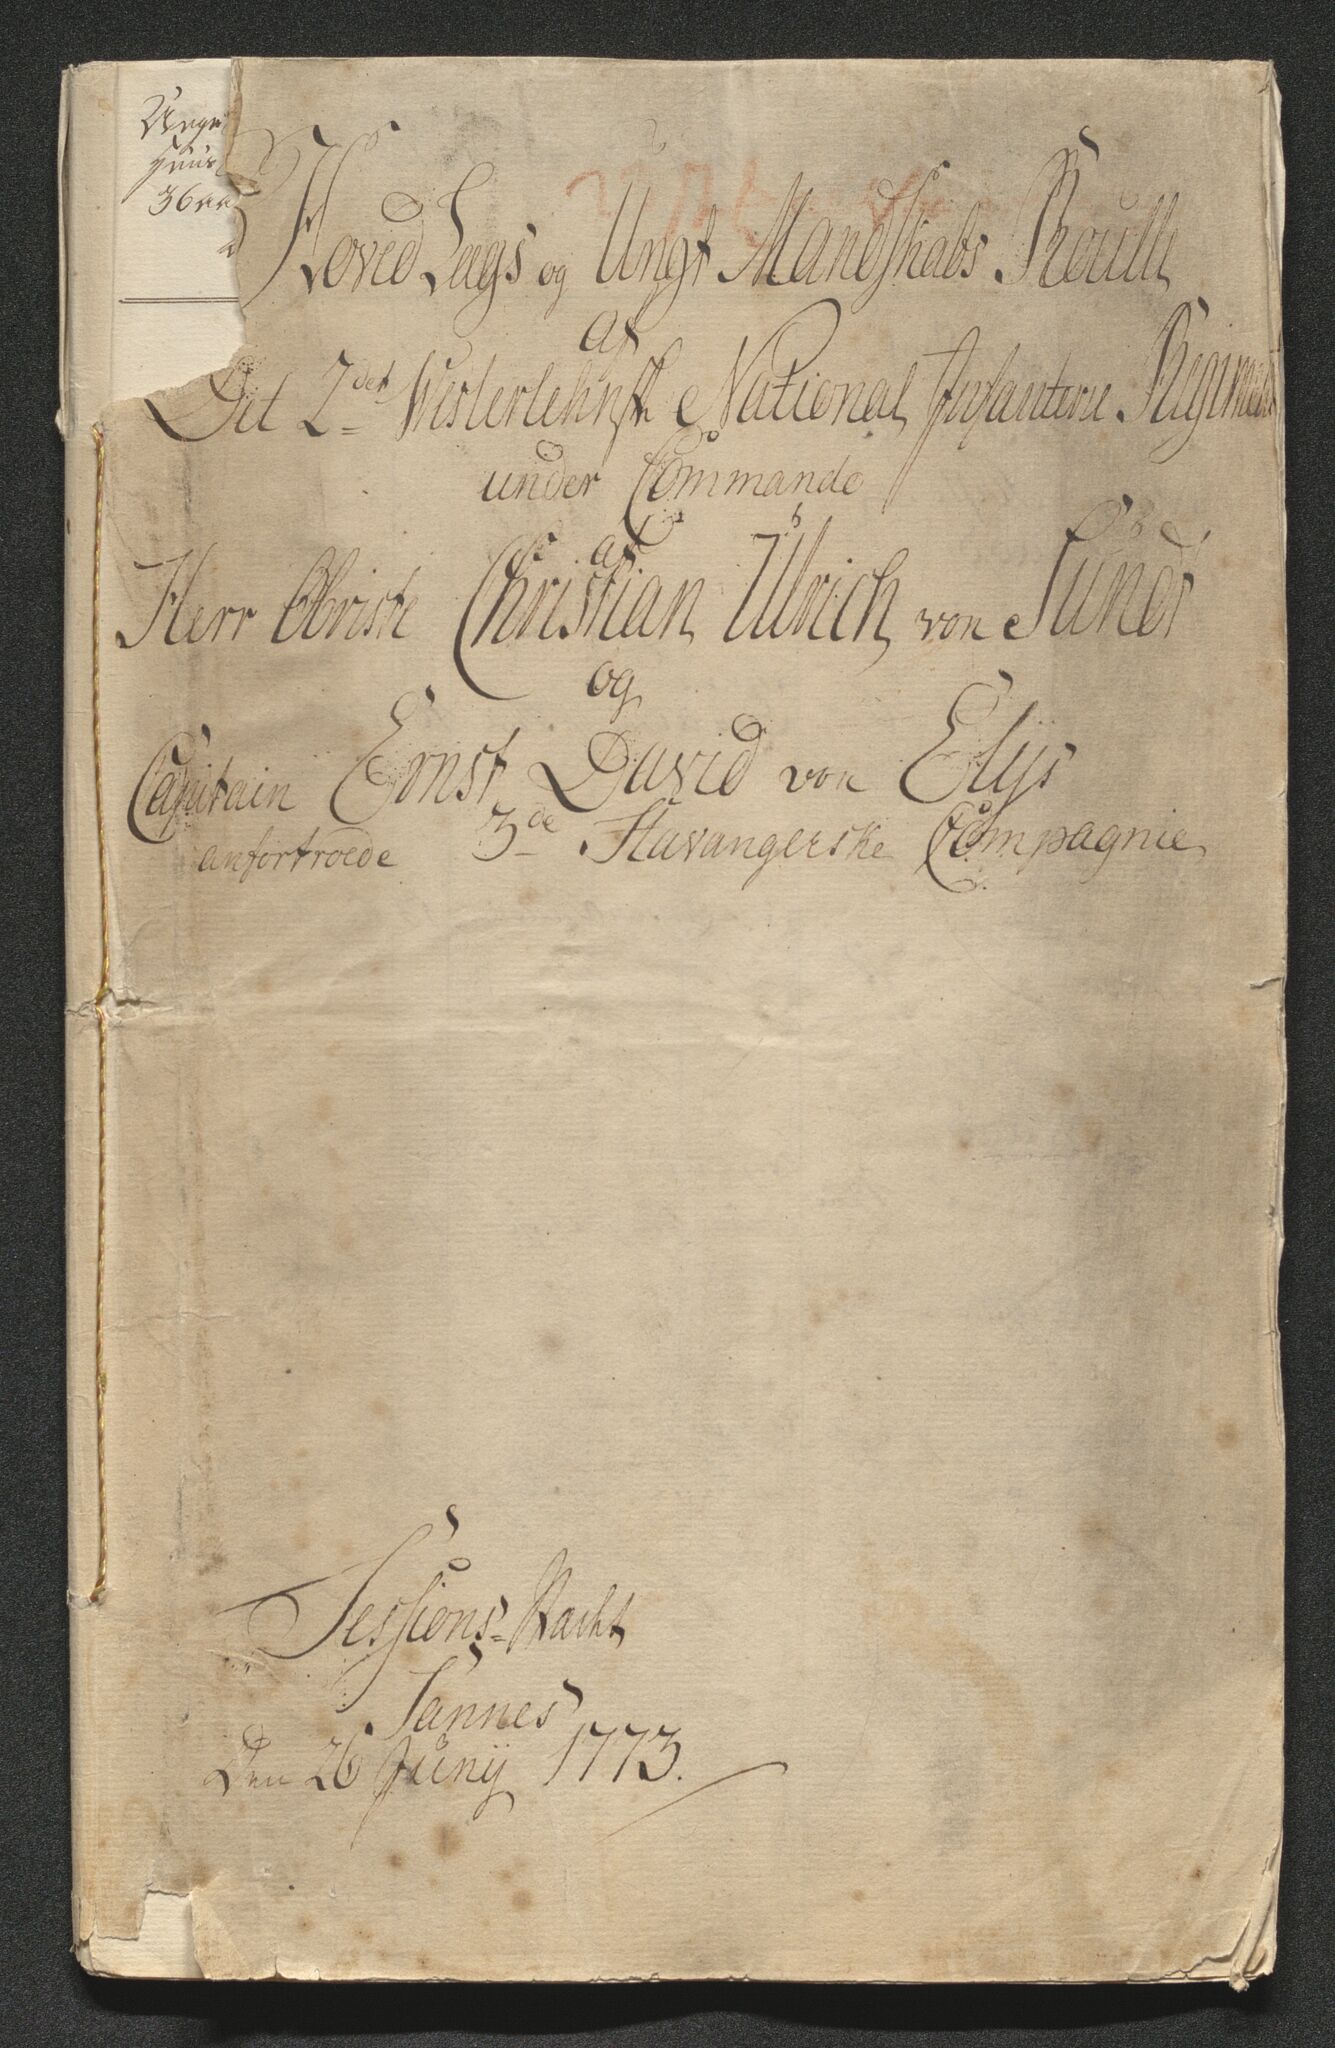 Hoved Lags og Ungt Mandskabs Roulle
af
Det 2det Westerlehnske National Infanterie Regiment
under Commando
af
Herr Obriste Christian Ulrich von Sundt
og
Capitain Ernst David von Elijs
anfortroede 3de Stavangerske Compagnie
Sessions-Wacht
Sannes
Den 26 Junij 1773.